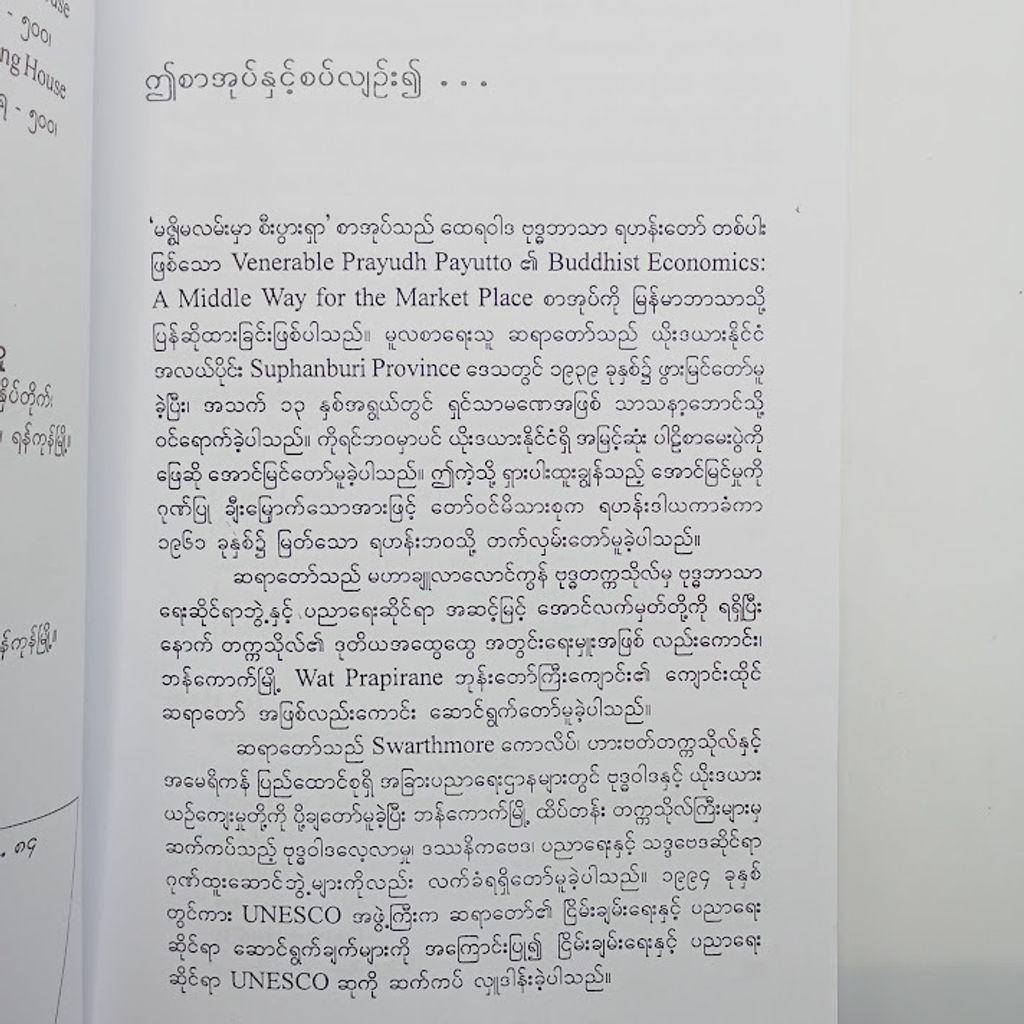 use
- ၅၀၀၊
ng House
- ၅၀၀၊
နှိပ်တိုက်၊
ရန်ကုန်မြို့။
န်ကုန်မြို့။
၈၄
ဤစာအုပ်နှင့်စပ်လျဉ်း၍ . . .
‘မဇ္ဈိမလမ်းမှာ စီးပွားရှာ’ စာအုပ်သည် ထေရဝါဒ ဗုဒ္ဓဘာသာ ရဟန်းတော် တစ်ပါး
ဖြစ်သော Venerable Prayudh Payutto ၏ Buddhist Economics:
A Middle Way for the Market Place စာအုပ်ကို မြန်မာဘာသာသို့
ပြန်ဆိုထားခြင်းဖြစ်ပါသည်။ မူလစာရေးသူ ဆရာတော်သည် ယိုးဒယားနိုင်ငံ
အလယ်ပိုင်း Suphanburi Province ဒေသတွင် ၁၉၃၉ ခုနှစ်၌ ဖွားမြင်တော်မူ
ခဲ့ပြီး၊ အသက် ၁၃ နှစ်အရွယ်တွင် ရှင်သာမဏေအဖြစ် သာသနာ့ဘောင်သို့
ဝင်ရောက်ခဲ့ပါသည်။ ကိုရင်ဘဝမှာပင် ယိုးဒယားနိုင်ငံရှိ အမြင့်ဆုံး ပါဠိစာမေးပွဲကို
ဖြေဆို အောင်မြင်တော်မူခဲ့ပါသည်။ ဤကဲ့သို့ ရှားပါးထူးချွန်သည့် အောင်မြင်မှုကို
ဂုဏ်ပြု ချီးမြှောက်သောအားဖြင့် တော်ဝင်မိသားစုက ရဟန်းဒါယကာခံကာ
၁၉၆၁ ခုနှစ်၌ မြတ်သော ရဟန်းဘဝသို့ တက်လှမ်းတော်မူခဲ့ပါသည်။
ဆရာတော်သည် မဟာချူလာလောင်ကွန် ဗုဒ္ဓတက္ကသိုလ်မှ ဗုဒ္ဓဘာသာ
ရေးဆိုင်ရာဘွဲ့နှင့် ပညာရေးဆိုင်ရာ အဆင့်မြင့် အောင်လက်မှတ်တို့ကို ရရှိပြီး
နောက် တက္ကသိုလ်၏ ဒုတိယအထွေထွေ အတွင်းရေးမှူးအဖြစ် လည်းကောင်း၊
ဘန်ကောက်မြို့ Wat Prapirane ဘုန်းတော်ကြီးကျောင်း၏ ကျောင်းထိုင်
ဆရာတော် အဖြစ်လည်းကောင်း ဆောင်ရွက်တော်မူခဲ့ပါသည်။
ဆရာတော်သည် Swarthmore ကောလိပ်၊ ဟားဗတ်တက္ကသိုလ်နှင့်
အမေရိကန် ပြည်ထောင်စုရှိ အခြားပညာရေးဌာနများတွင် ဗုဒ္ဓဝါဒနှင့် ယိုးဒယား
ယဉ်ကျေးမှုတို့ကို ပို့ချတော်မူခဲ့ပြီး ဘန်ကောက်မြို့ ထိပ်တန်း တက္ကသိုလ်ကြီးများမှ
ဆက်ကပ်သည့် ဗုဒ္ဓဝါဒလေ့လာမှု၊ ဒဿနိကဗေဒ၊ ပညာရေးနှင့် သဒ္ဒဗေဒဆိုင်ရာ
ဂုဏ်ထူးဆောင်ဘွဲ့များကိုလည်း လက်ခံရရှိတော်မူခဲ့ပါသည်။ ၁၉၉၄ ခုနှစ်
တွင်ကား UNESCO အဖွဲ့ကြီးက ဆရာတော်၏ ငြိမ်းချမ်းရေးနှင့် ပညာရေး
ဆိုင်ရာ ဆောင်ရွက်ချက်များကို အကြောင်းပြု၍ ငြိမ်းချမ်းရေးနှင့် ပညာရေး
ဆိုင်ရာ UNESCO ဆုကို ဆက်ကပ် လှူဒါန်းခဲ့ပါသည်။